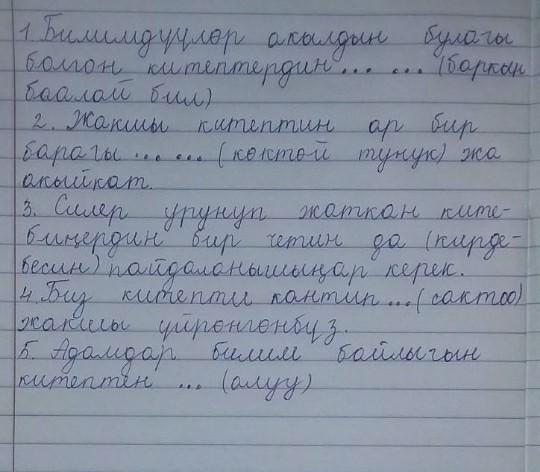 1. Билимдүүлөр акылдын булагы
болгон китептердин ... ... (баркын
баалай бил)
2. Жакшы китептин ар бир
барагы ... ... (көктөй тунук) жа
акыйкат.
3. Силер урунуп жаткан ките-
биңердин бир четин да (кирде-
бесин) пайдаланышыңар керек.
4. Биз китепти кантип ... (сактоо)
жакшы үйрөнгөнбүз.
5. Адамдар билим байлыгын
китептен ... (алуу)